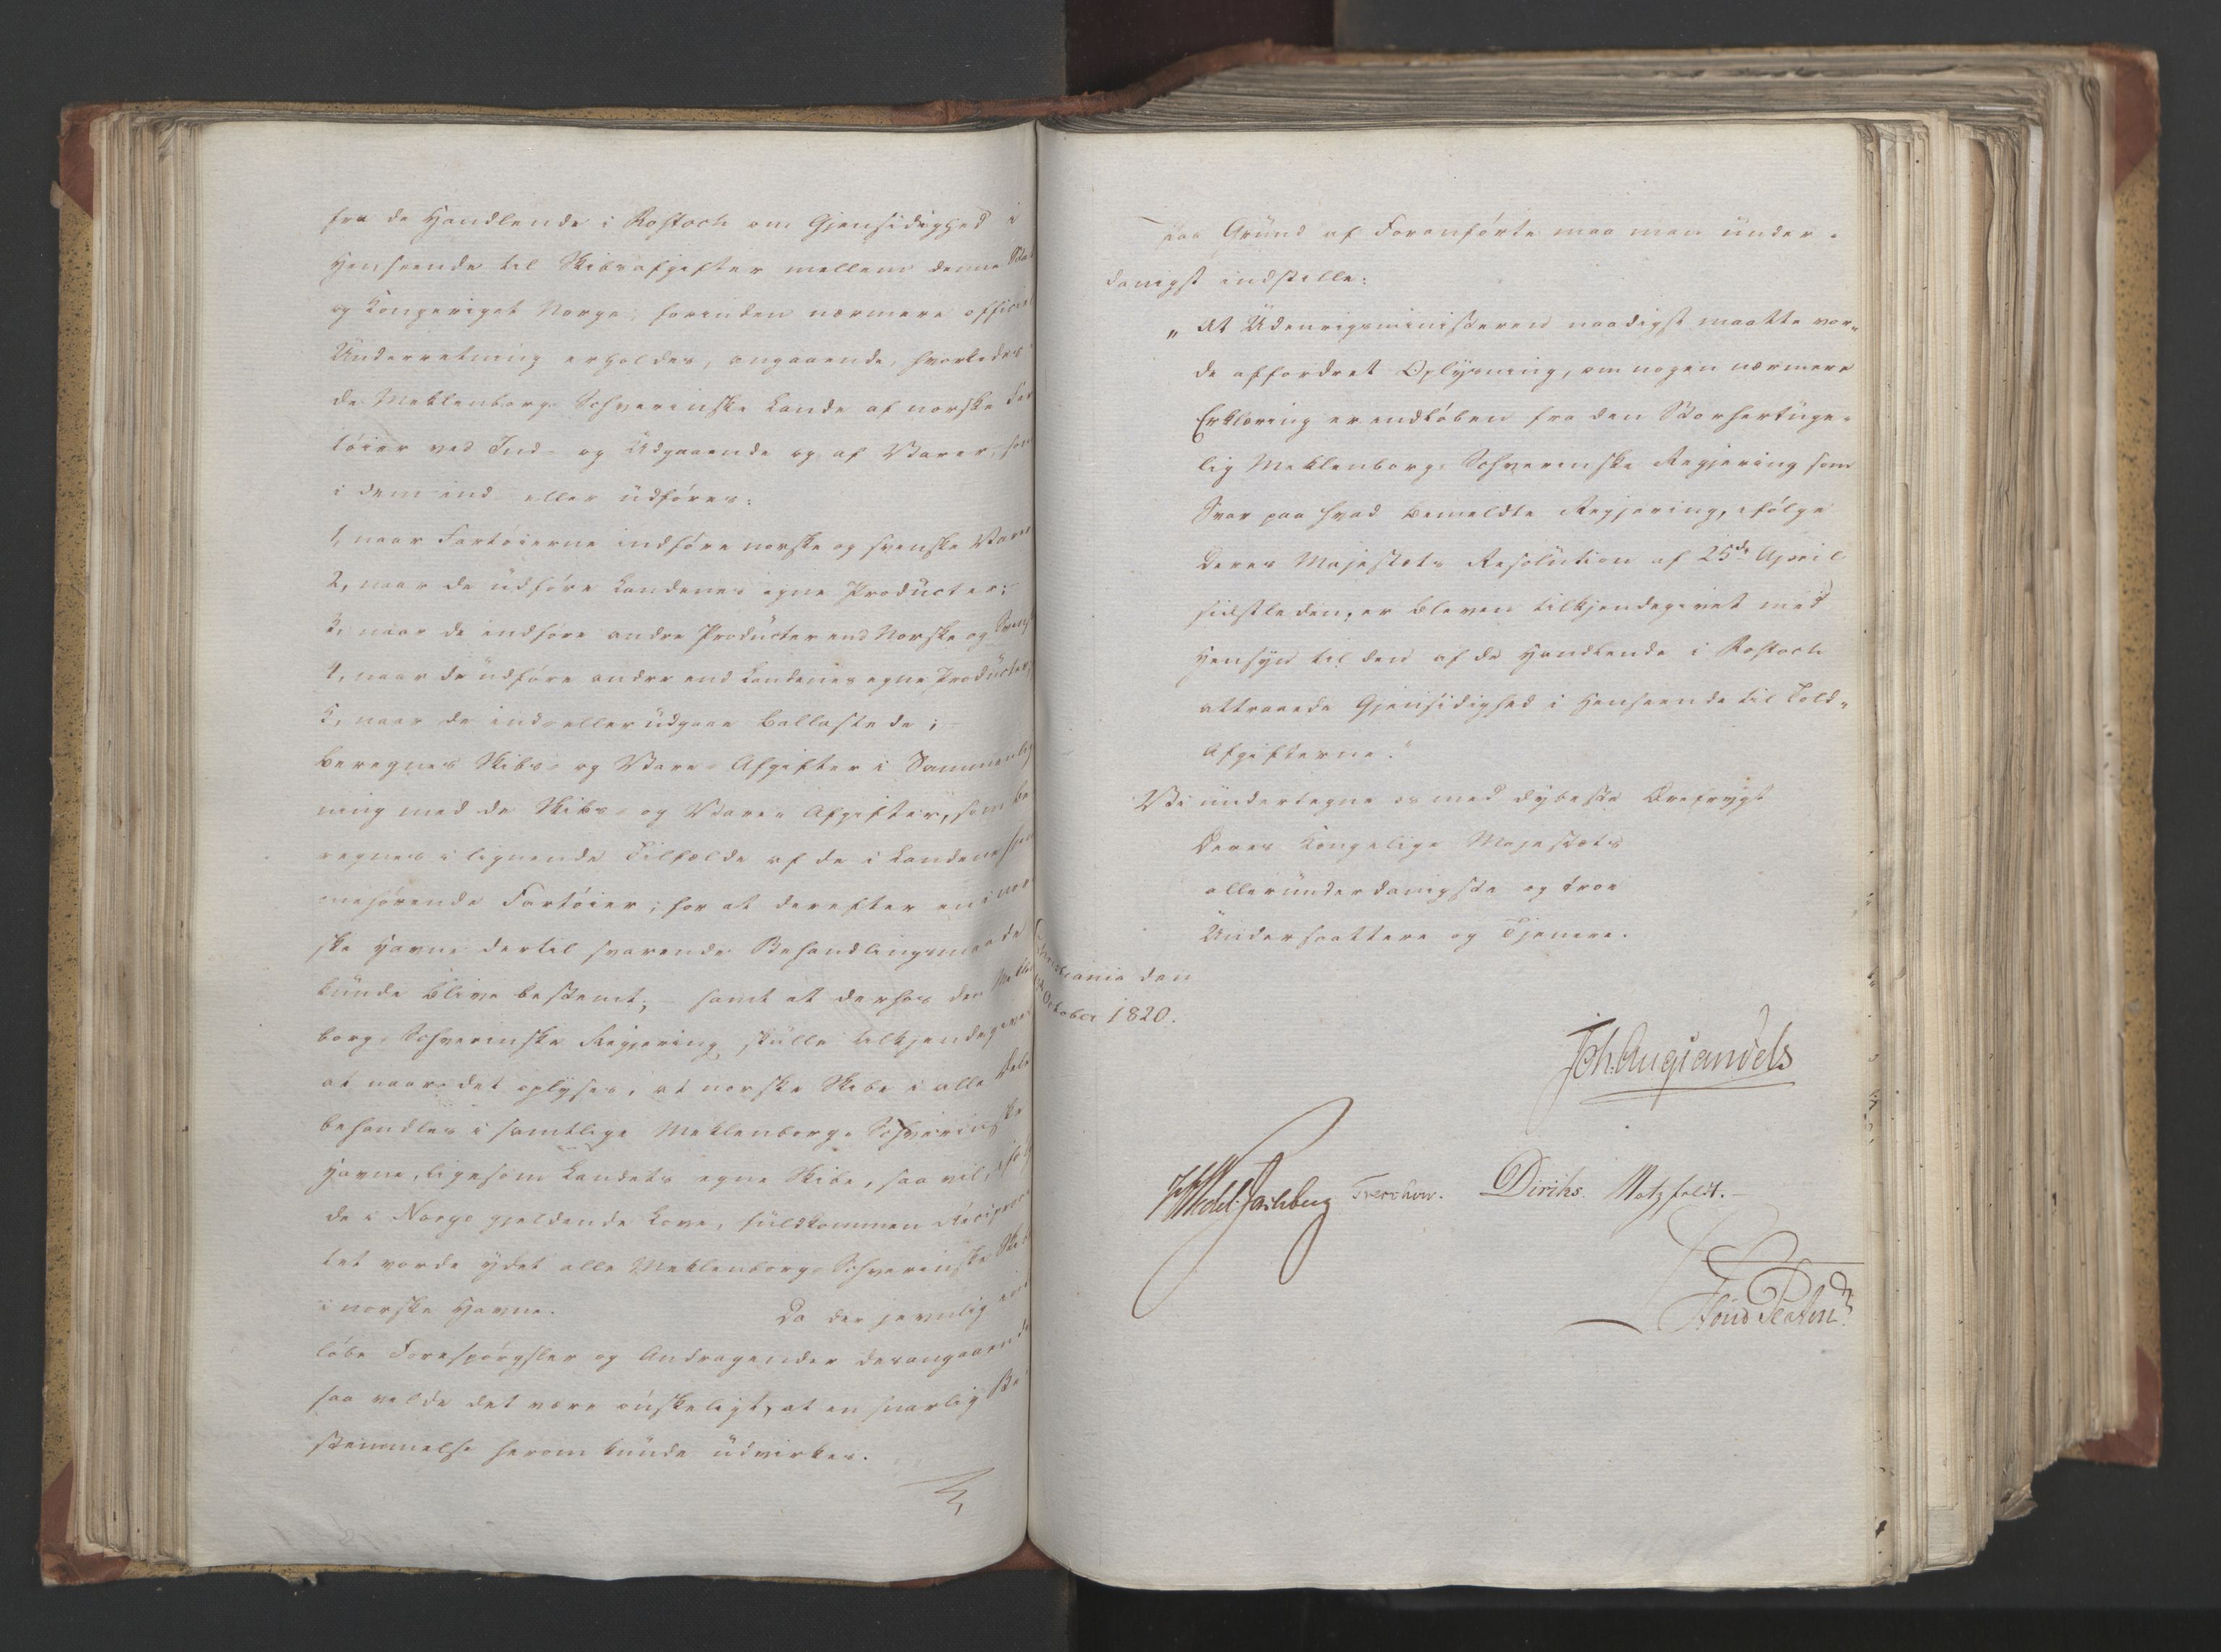 fra de Handlende i Rostock om Gjensidighed i
Henseende til Skibsafgifter mellem denne Stat
og Kongeriget Norge, forinden nærmere officiel
Underretning erholdes, angaaende, hvorledes i
de Meklenborg-Schverinske Lande af norske Far
tøier ved Ind- og Udgaaende og af Varer, som
i dem ind- eller udføres:
1, naar Fartøierne indføre norske og svenske Varer
2, naar de udføre Landenes egne Producter;
3, naar de indføre andre Producter end Norske og Svenske
4, naar de udføre andre end Landenes egne Producter;
5, naar de ind- eller udgaae ballastede;
beregnes Skibs- og Vare-Afgifter i Sammenlig
ning med de Skibs- og Vare-Afgifter, som be
regnes i lignende Tilfælde af de i Landene
mehørende Fartøier; for at derefter en i nor
ske Havne dertil svarende Behandlingsmaade
kunde blive bestemt; – samt at derhos den Meklen
borg-Schverinske Regjering skulle tilkjendegives
at naar det oplyses, at norske Skibe i alle Dele
behandles i samtlige Meklenborg-Schverinske
Havne, ligesom Landets egne Skibe, saa vil, ifølge
de i Norge gjeldende Love, fuldkommen Reciproci
tet vorde ydet alle Meklenborg-Schverinske Skibe
i norske Havne. Da der jevnlig ind
løbe Forespørgsler og Andragender desangaaende
saa vilde det være ønskeligt, at en snarlig Be
stemmelse herom kunde udvirkes.
Paa Grund af Foranførte maa man under-
danigst indstille:
„At Udenrigsministeren naadigst maatte vor-
de affordret Oplysning, om nogen nærmere
Erklæring er indløben fra den Storhertuge-
lig Meklenborg-Schverinske Regjering som
Svar paa hvad bemeldte Regjering, ifølge
Deres Majestæts Resolution af 25de April
sidstleden, er bleven tilkjendegivet med
Hensyn til den af de Handlende i Rostock
attraaede Gjensidighed i Henseende til Told-
Afgifterne."
Vi undertegne os med dybeste Ærefrygt
Deres Kongelige Majestæts
allerunderdanigste og troe
Undersaattere og Tjenere.
Christiania den
October 1820.
Joh. Aug. Sandels
Wedel-Jarlsberg Treschow. Diriks. Motzfeldt.